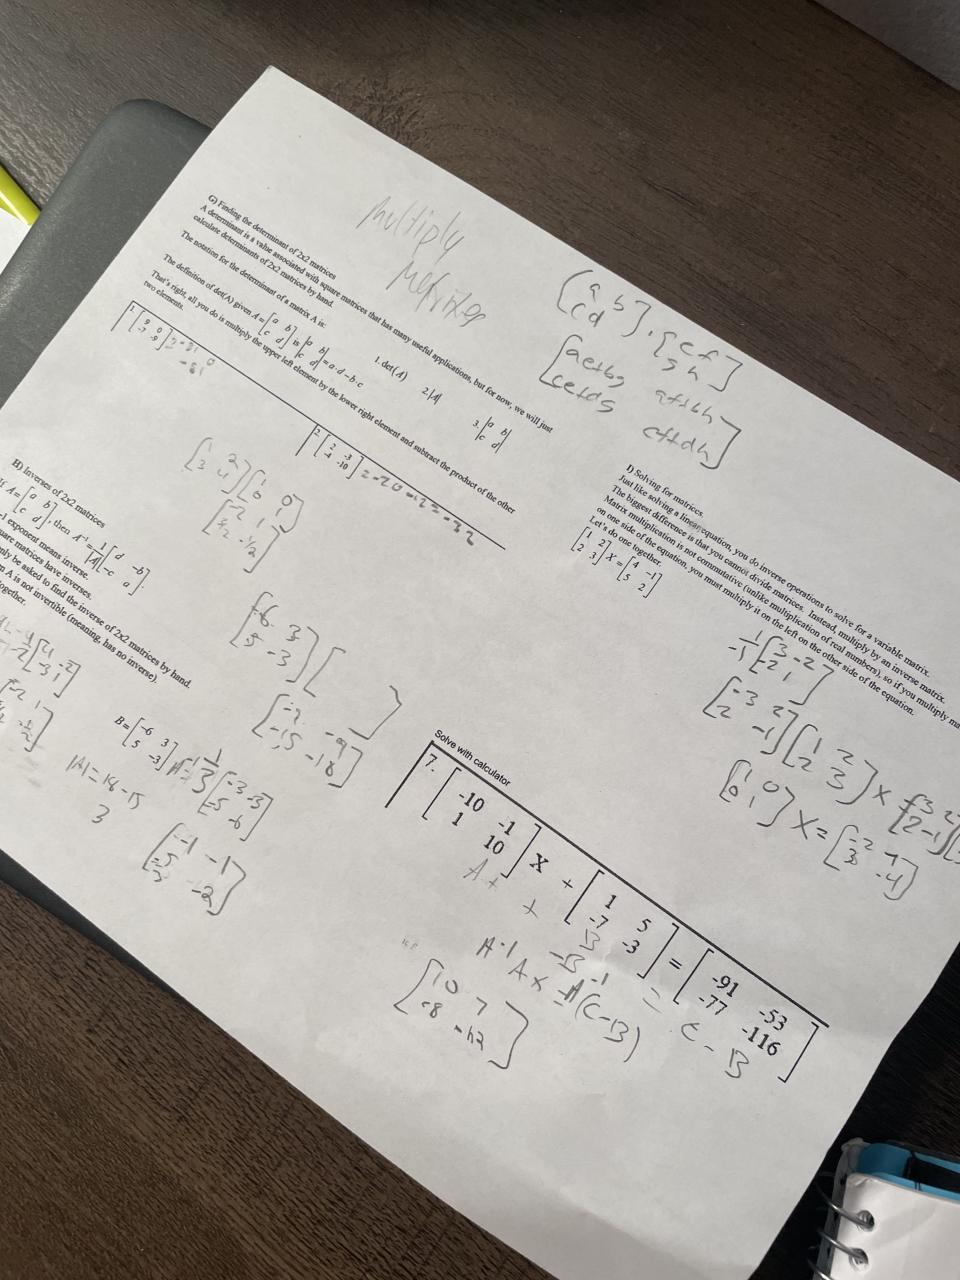 multiply
Matrixes
[a b
c d] · [e f
g h]
[ae+bg af+bh
ce+dg cf+dh]
G) Finding the determinant of 2x2 matrices
A determinant is a value associated with square matrices that has many useful applications, but for now, we will just
calculate determinants of 2x2 matrices by hand.
The notation for the determinant of a matrix A is:
1. det(A) 2. |A| 3. |a b
c d|
The definition of det(A) given A = [a b
c d] is |a b
c d| = a·d – b·c
That's right, all you do is multiply the upper left element by the lower right element and subtract the product of the other
two elements.
1. [9 0
-7 -9] = -81 - 0
-81
2. [2 -3
-4 -10] = -20 - 12 = -32
[1 2
3 4] [1 0
0 1]
[-2 1
3/2 -1/2]
H) Inverses of 2x2 matrices
A = [a b
c d], then A⁻¹ = 1/|A| [d -b
-c a].
-1 exponent means inverse.
square matrices have inverses.
only be asked to find the inverse of 2x2 matrices by hand.
A is not invertible (meaning, has no inverse).
together.
[4 -2
-3 1]
[-2 1
[-6 3
5 -3] [
]
[-2 -9
-15 -18]
B = [-6 3
5 -3] A⁻¹ = 1/3 [-3 -3
-5 -6]
|A| = 18 - 15
3
[-1 -1
-5/3 -2]
I) Solving for matrices.
Just like solving a linear equation, you do inverse operations to solve for a variable matrix.
The biggest difference is that you cannot divide matrices. Instead, multiply by an inverse matrix.
Matrix multiplication is not commutative (unlike multiplication of real numbers), so if you multiply
on one side of the equation, you must multiply it on the left on the other side of the equation.
Let's do one together.
[1 2
2 3] X = [4 -1
5 2]
1/-1 [3 -2
-2 1]
[-3 2
2 -1] [1 2
2 3] X [-3 2
2 -1]
[1 0
0 1] X = [-2 7
3 -4]
Solve with calculator
7. [-10 -1
1 10] X + [1 5
-7 -3] = [-91 -53
-77 -116]
A + B
-B = C - B
A⁻¹ A X = A⁻¹ (C - B)
[10 7
-8 -12]